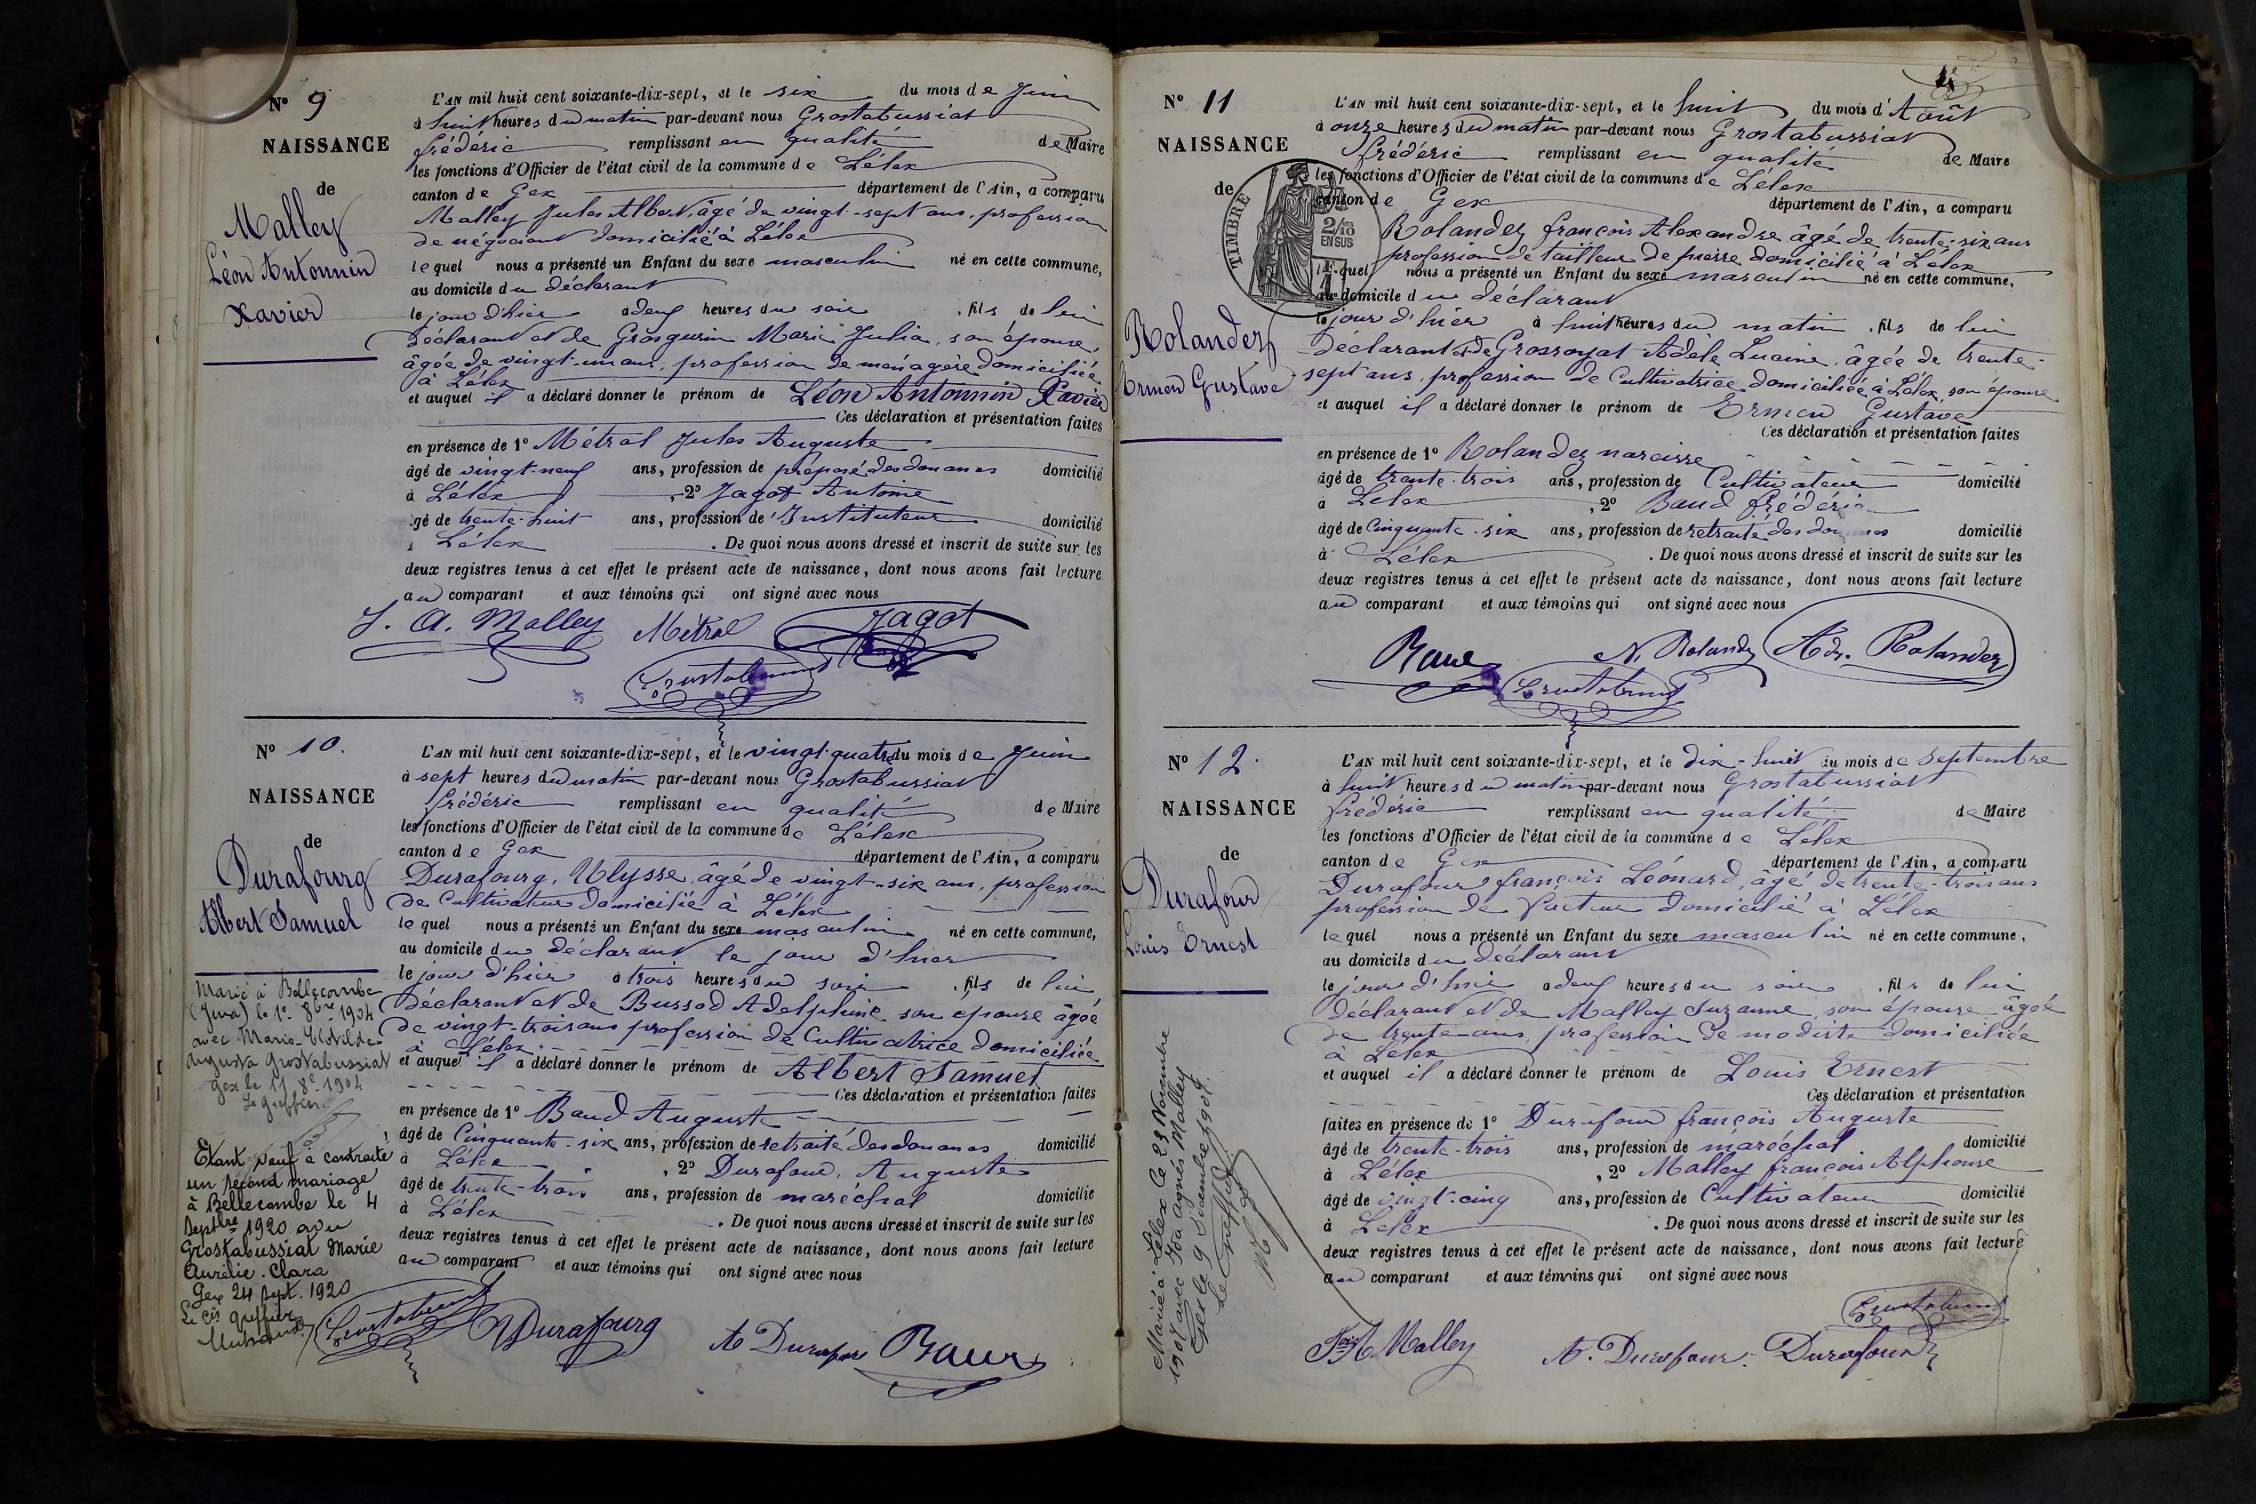 N° 9
NAISSANCE
de
Malley
Léon Antonnin
Xavier
L'AN mil huit cent soixante-dix-sept, et le six du mois de Juin
à huit heures du matin par-devant nous Grostabussiat
frédéric remplissant en qualité de Maire
les fonctions d'Officier de l'état civil de la commune de Lélex
canton de Gex département de l'Ain, a comparu
Malley Jules Albert, âgé de vingt-sept ans, profession
de négociant domicilié à Lélex
lequel nous a présenté un Enfant du sexe masculin né en cette commune,
au domicile du déclarant
le jour d'hier à deux heures du soir, fils de lui
déclarant et de Grosgurin Marie Julia, son épouse,
âgée de vingt-un ans, profession de ménagère domiciliée
à Lélex
et auquel il a déclaré donner le prénom de Léon Antonnin Xavier
Ces déclaration et présentation faites
en présence de 1° Métral Jules Auguste
âgé de vingt-neuf ans, profession de préposé des douanes domicilié
à Lélex, 2° Jagot Antoine
âgé de trente-huit ans, profession d'Instituteur domicilié
à Lélex. De quoi nous avons dressé et inscrit de suite sur les
deux registres tenus à cet effet le présent acte de naissance, dont nous avons fait lecture
au comparant et aux témoins qui ont signé avec nous
J. A. Malley Métral Jagot
Grostabussiat
N° 10.
NAISSANCE
de
Durafourg
Albert Samuel
Marié à Bellecombe
(Jura) le 1er 8bre 1904
avec Marie-Clotilde-
Augusta Grostabussiat
Gex le 11 8e 1904
Le Greffier
Etant veuf a contracté
un second mariage
à Bellecombe le 4
Septbre 1920 avec
Grostabussiat Marie
Aurélie Clara
Gex 24 Sept. 1920
Le cis Greffier
L'AN mil huit cent soixante-dix-sept, et le vingt-quatre du mois de Juin
à sept heures du matin par-devant nous Grostabussiat
frédéric remplissant en qualité de Maire
les fonctions d'Officier de l'état civil de la commune de Lélex
canton de Gex département de l'Ain, a comparu
Durafourg, Ulysse, âgé de vingt-six ans, profession
de Cultivateur domicilié à Lélex
lequel nous a présenté un Enfant du sexe masculin né en cette commune,
au domicile du déclarant le jour d'hier
le jour d'hier à trois heures du soir, fils de lui
déclarant et de Bussod Adelphine son épouse âgée
de vingt-trois ans profession de Cultivatrice domiciliée
à Lélex
et auquel il a déclaré donner le prénom de Albert Samuel
Ces déclaration et présentation faites
en présence de 1° Baud Auguste
âgé de Cinquante-six ans, profession de retraité des douanes domicilié
à Lélex, 2° Durafour, Auguste
âgé de trente-trois ans, profession de maréchal domicilié
à Lélex. De quoi nous avons dressé et inscrit de suite sur les
deux registres tenus à cet effet le présent acte de naissance, dont nous avons fait lecture
au comparant et aux témoins qui ont signé avec nous
Grostabussiat UDurafourg A Durafour Baud
N° 11
NAISSANCE
de
TIMBRE
2/10
EN SUS
Rolandez
Ermen Gustave
L'AN mil huit cent soixante-dix-sept, et le huit du mois d'Août
à onze heures du matin par-devant nous Grostabussiat
frédéric remplissant en qualité de Maire
les fonctions d'Officier de l'état civil de la commune de Lélex
canton de Gex département de l'Ain, a comparu
Rolandez françois Alexandre âgé de trente-six ans
profession de tailleur de pierre domicilié à Lélex
lequel nous a présenté un Enfant du sexe masculin né en cette commune,
au domicile du déclarant
le jour d'hier à huit heures du matin, fils de lui
déclarant et de Grosroyat Adèle Lucine, âgée de trente-
sept ans, profession de Cultivatrice domiciliée à Lélex, son épouse
et auquel il a déclaré donner le prénom de Ermen Gustave
Ces déclaration et présentation faites
en présence de 1° Rolandez narcisse
âgé de trente-trois ans, profession de Cultivateur domicilié
à Lélex, 2° Baud frédéric
âgé de Cinquante-six ans, profession de retraité des douanes domicilié
à Lélex. De quoi nous avons dressé et inscrit de suite sur les
deux registres tenus à cet effet le présent acte de naissance, dont nous avons fait lecture
au comparant et aux témoins qui ont signé avec nous
Baud N. Rolandez Adr. Rolandez
Grostabussiat
N° 12.
NAISSANCE
de
Durafour
Louis Ernest
Marié à Lélex le 23 Novembre
1901 avec Ida Agnès Malley
Gex le 9 Décembre 1901.
Le Greffier
L'AN mil huit cent soixante-dix-sept, et le dix-huit du mois de Septembre
à huit heures du matin par-devant nous Grostabussiat
frédéric remplissant en qualité de Maire
les fonctions d'Officier de l'état civil de la commune de Lélex
canton de Gex département de l'Ain, a comparu
Durafour françois Léonard, âgé de trente-trois ans
profession de facteur domicilié à Lélex
lequel nous a présenté un Enfant du sexe masculin né en cette commune,
au domicile du déclarant
le jour d'hier à deux heures du soir, fils de lui
déclarant et de Malley Suzanne, son épouse âgée
de trente ans, profession de modiste domiciliée
à Lélex
et auquel il a déclaré donner le prénom de Louis Ernest
Ces déclaration et présentation
faites en présence de 1° Durafour françois Auguste
âgé de trente-trois ans, profession de maréchal domicilié
à Lélex, 2° Malley françois Alphonse
âgé de vingt-cinq ans, profession de Cultivateur domicilié
à Lélex. De quoi nous avons dressé et inscrit de suite sur les
deux registres tenus à cet effet le présent acte de naissance, dont nous avons fait lecture
au comparant et aux témoins qui ont signé avec nous
Grostabussiat
Fois A Malley A. Durafour. Durafour